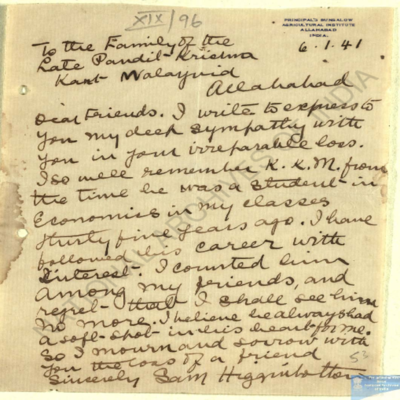 XIX/96
PRINCIPAL'S BUNGALOW
AGRICULTURAL INSTITUTE
ALLAHABAD
INDIA.
6.1.41
To the Family of the
Late Pandit Krishna
Kant Malaynid
Allahabad
Dear Friends. I write to express to
you my deep sympathy with
you in your irreparable loss.
I so well remember K.K.M. from
the time he was a student in
Economics in my classes
thirty five years ago. I have
followed his career with
Interest. I counted him
among my friends, and
regret that I shall see him
no more. I believe he always had
a soft-shot in his heart for me.
So I mourn and sorrow with
you the loss of a friend
Sincerely Sam Higginbottom